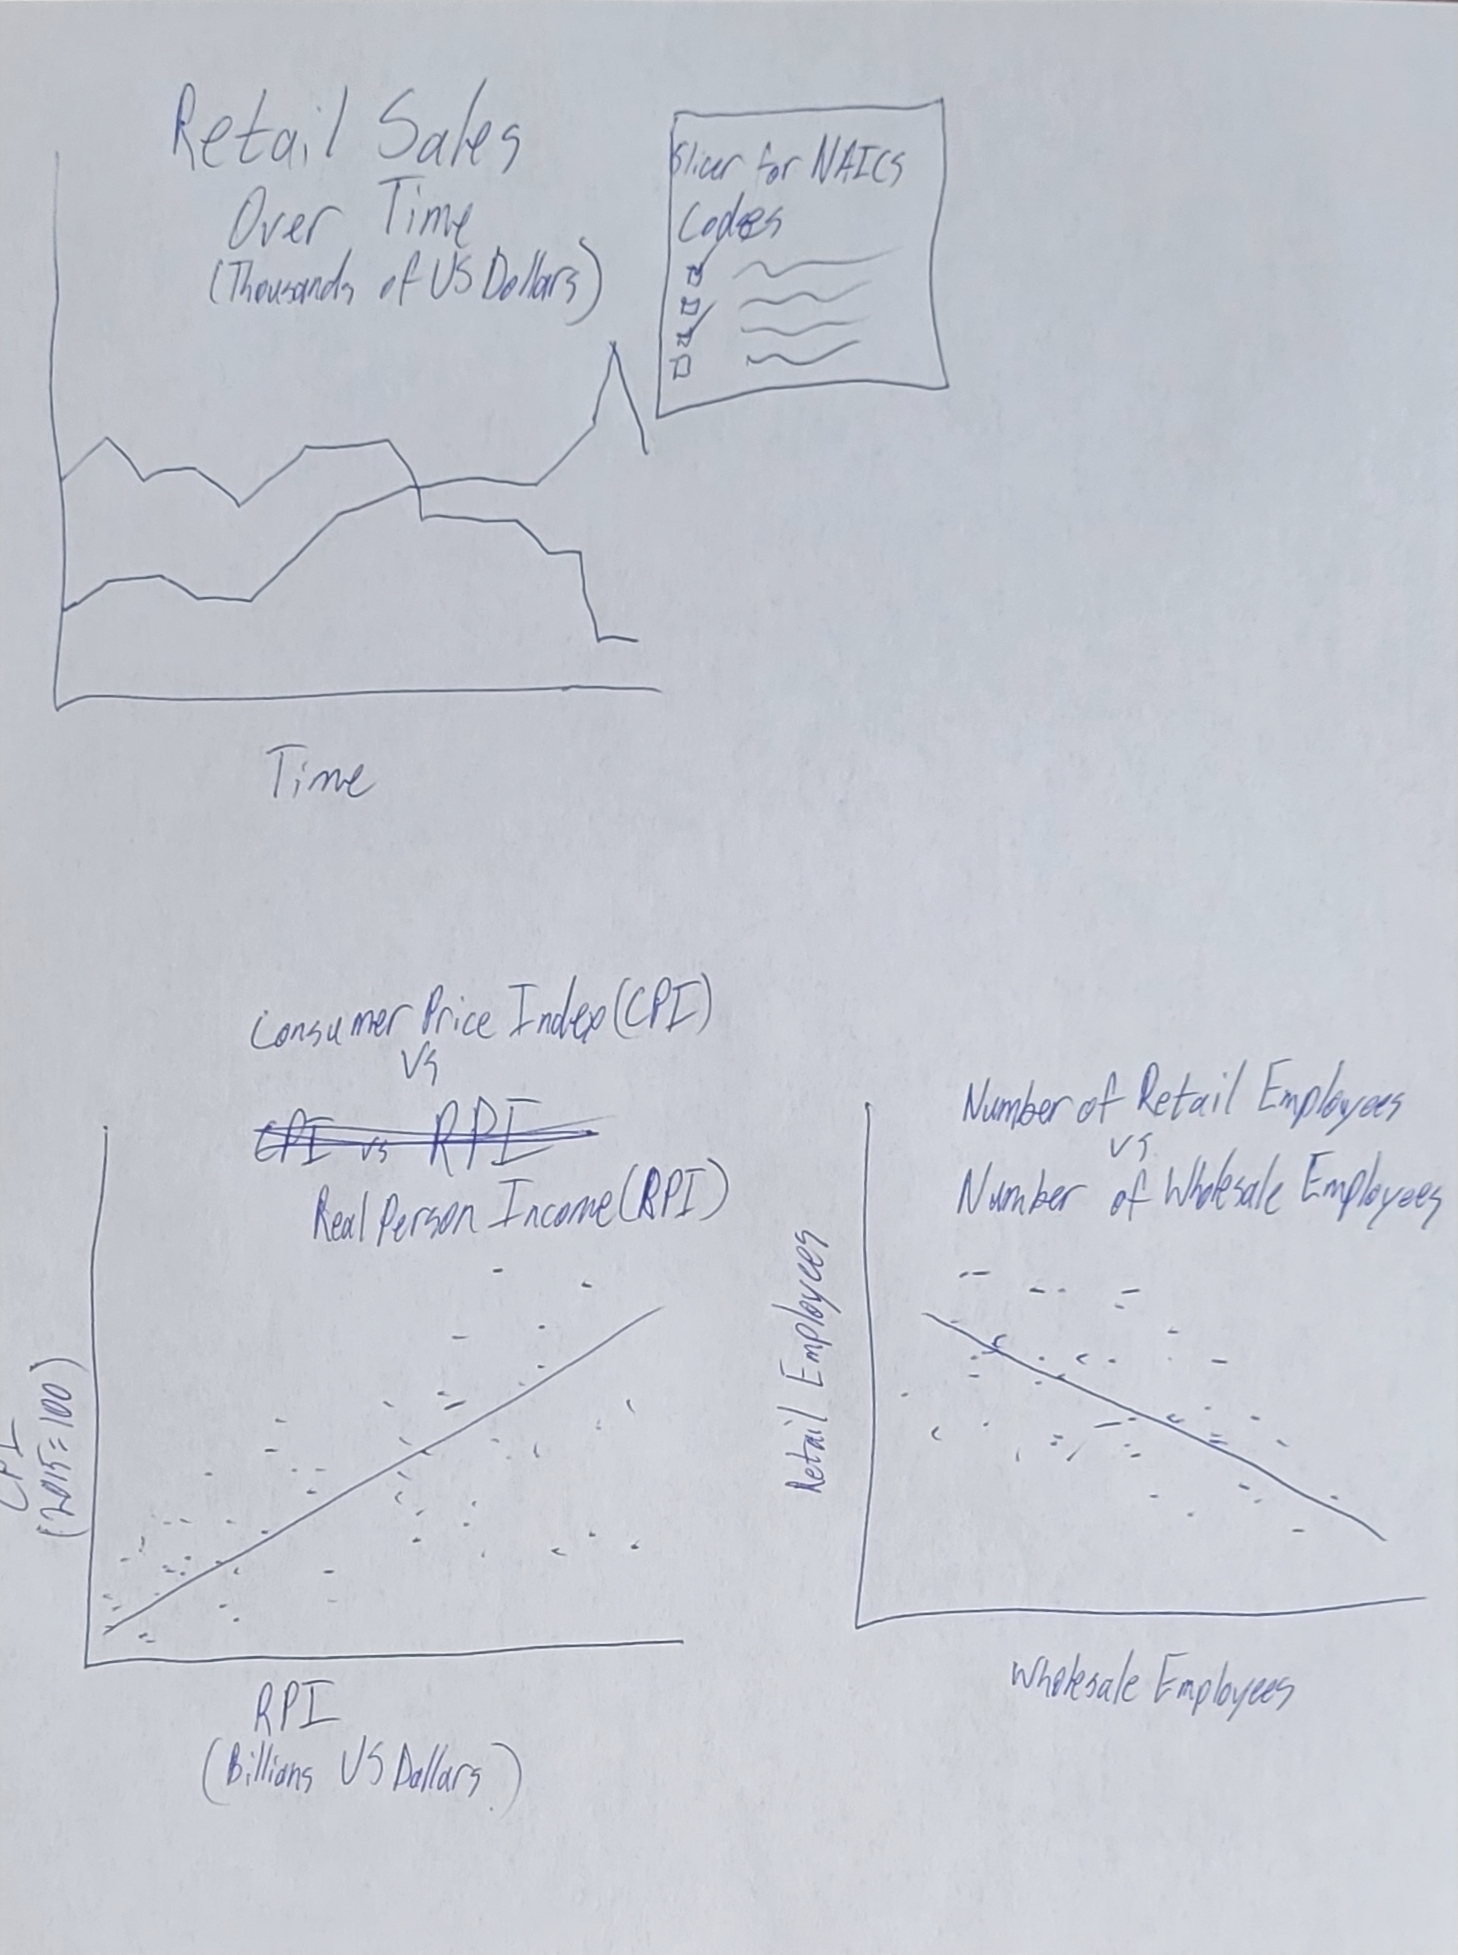 Retail Sales
Over Time
(Thousands of US Dollars)
Slicer for NAICS
Codes
Time
Consumer Price Index (CPI)
vs
CPI vs RPI
Real Person Income (RPI)
CPI
(2015=100)
RPI
(Billions US Dollars)
Number of Retail Employees
vs
Number of Wholesale Employees
Retail Employees
Wholesale Employees